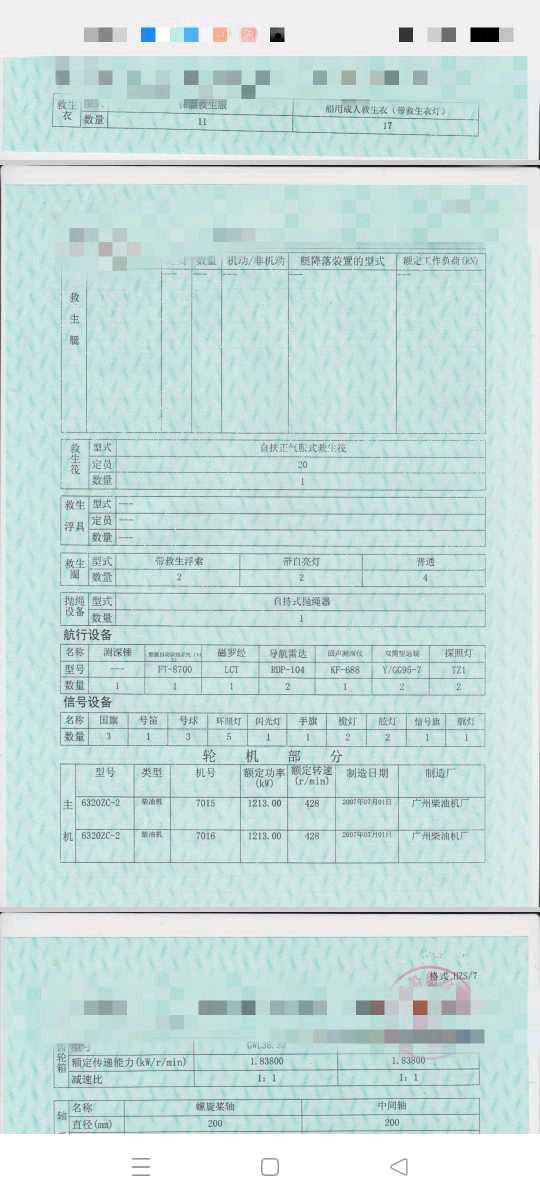 救生衣 数量 11 17
船用成人救生衣（带救生衣灯）
数量 机动/非机动 艇降落装置的型式 额定工作负荷(kN)
救生艇 --- --- --- --- ---
救生筏 型式 自扶正气胀式救生筏
定员 20
数量 1
救生浮具 型式 ---
定员 ---
数量 ---
救生圈 型式 带救生浮索 带自亮灯 普通
数量 2 2 4
抛绳设备 型式 自持式抛绳器
数量 1
航行设备
名称 测深锤 磁罗经 导航雷达 回声测深仪 双筒望远镜 探照灯
型号 --- FT-8700 LCT RDP-104 KF-688 Y/GG95-7 TZ1
数量 1 1 1 2 1 2 2
信号设备
名称 国旗 号笛 号球 环照灯 闪光灯 手旗 桅灯 舷灯 信号旗 艉灯
数量 3 1 3 5 1 1 2 2 1 1
轮机部分
型号 类型 机号 额定功率(kW) 额定转速(r/min) 制造日期 制造厂
主机 6320ZC-2 柴油机 7015 1213.00 428 2007年07月01日 广州柴油机厂
6320ZC-2 柴油机 7016 1213.00 428 2007年07月01日 广州柴油机厂
格式 HZS/7
轮箱
额定传递能力(kW/r/min) 1.83800 1.83800
减速比 1: 1 1: 1
轴 名称 螺旋桨轴 中间轴
直径(mm) 200 200